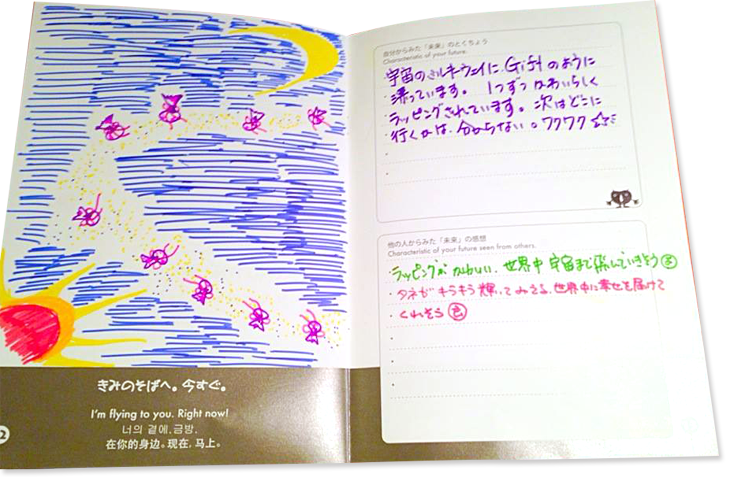 きみのそばへ。今すぐ。
I'm flying to you. Right now!
너의 곁에. 금방.
在你的身边。现在, 马上。
2
自分からみた「未来」のとくちょう
Characteristic of your future.
宇宙のミルキーウェイに、Giftのように
漂っています。 1つずつかわいらしく
ラッピングされています。次はどこに
行くかは、分からない。ワクワク☆
他の人からみた「未来」の感想
Characteristic of your future seen from others.
・ラッピングがかわいい、世界中 宇宙まで飛んでいきそう
・タネがキラキラ輝いてみえる、世界中に幸せを届けて
・くれそう